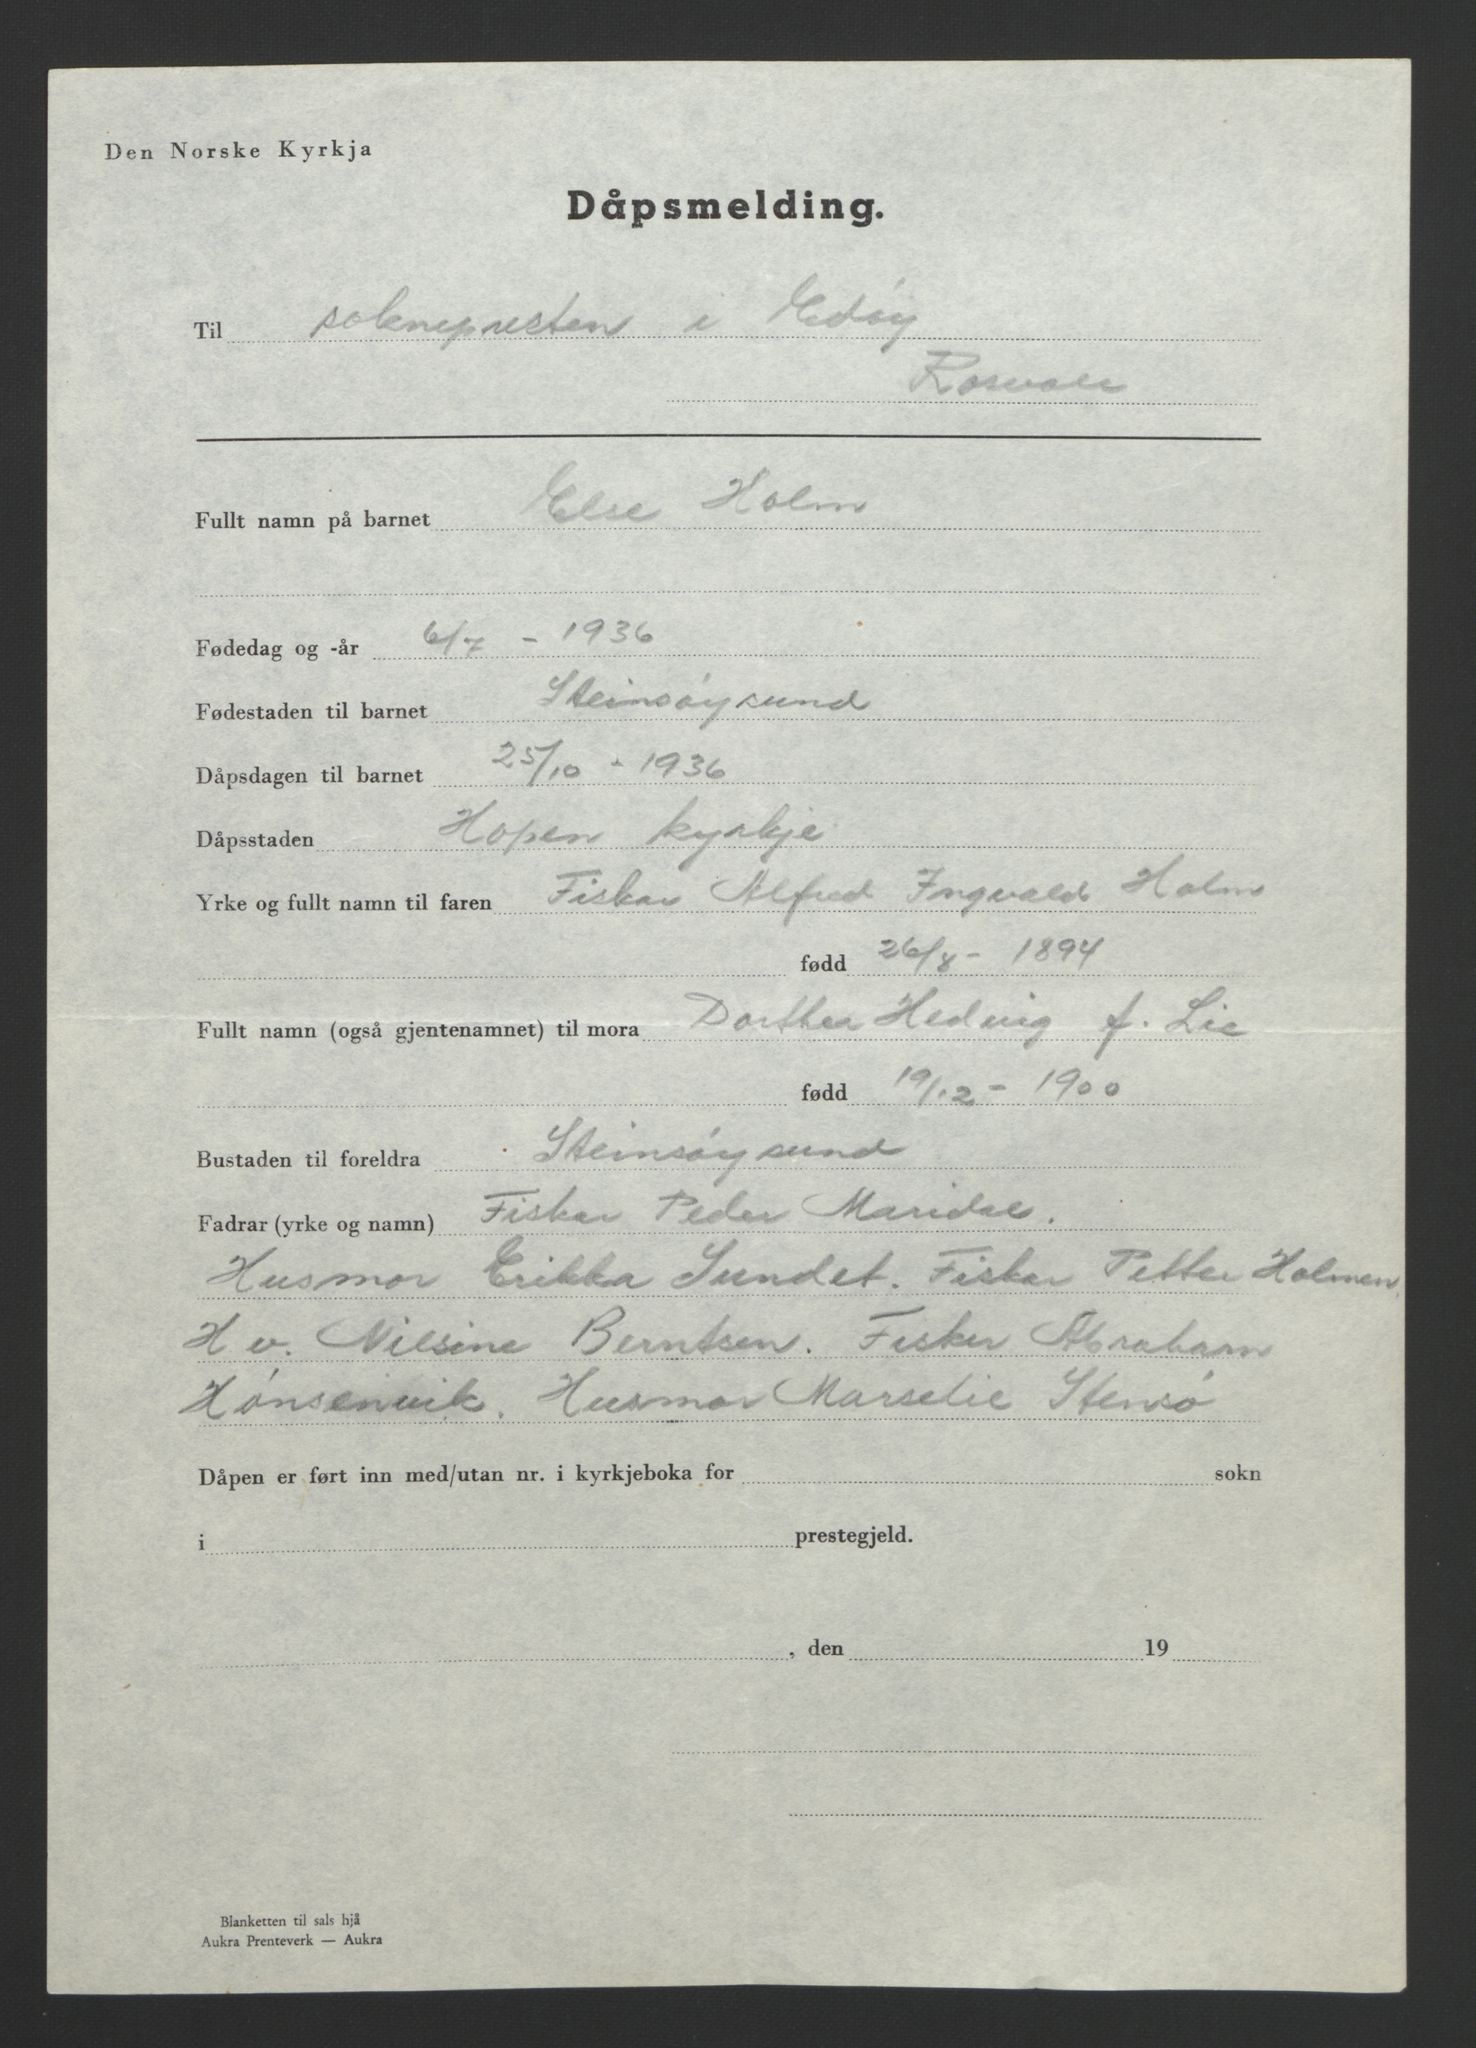 Den Norske Kyrkja
Dåpsmelding.
Til soknepresten i Edøy
Rosvoll
Fullt namn på barnet Else Holm
Fødedag og -år 6/7 - 1936
Fødestaden til barnet Steinsøysund
Dåpsdagen til barnet 25/10 - 1936
Dåpsstaden Hopen kyrkje
Yrke og fullt namn til faren Fiskar Alfred Ingvald Holm
fødd 26/8 - 1894
Fullt namn (også gjentenamnet) til mora Dorthea Hedvig f. Lie
fødd 19/12 - 1900
Bustaden til foreldra Steinsøysund
Fadrar (yrke og namn) Fiskar Peder Maridal.
Husmor Erikka Sundet. Fiskar Petter Holmen.
H v. Nilsine Berntsen. Fisker Abraham
Hønsenvik. Husmor Marselie Stensø
Dåpen er ført inn med/utan nr. i kyrkjeboka for sokn
i prestegjeld.
, den 19
Blanketten til sals hjå
Aukra Prenteverk — Aukra